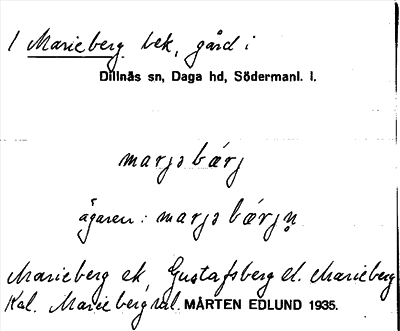 1 Marieberg bek, gård i
Dillnäs sn, Daga hd, Södermanl. l.
marjs bærj
ägaren: marjs bærjn̥
Marieberg ek, Gustafsberg el. Marieberg
Kal. Marieberg
MÅRTEN EDLUND 1935.